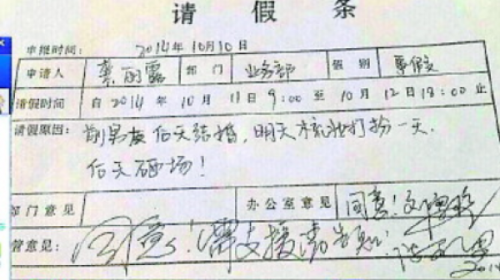 请假条
申报时间： 2014年10月10日
申请人 龚丽露 部门 业务部 假别 事假
请假时间 自2014年10月11日9:00至10月12日18:00止
请假原因： 前男友后天结婚，明天梳妆打扮一天.
后天砸场！
部门意见 办公室意见 同意！
管意见： 同意！需支援请告知！
2014